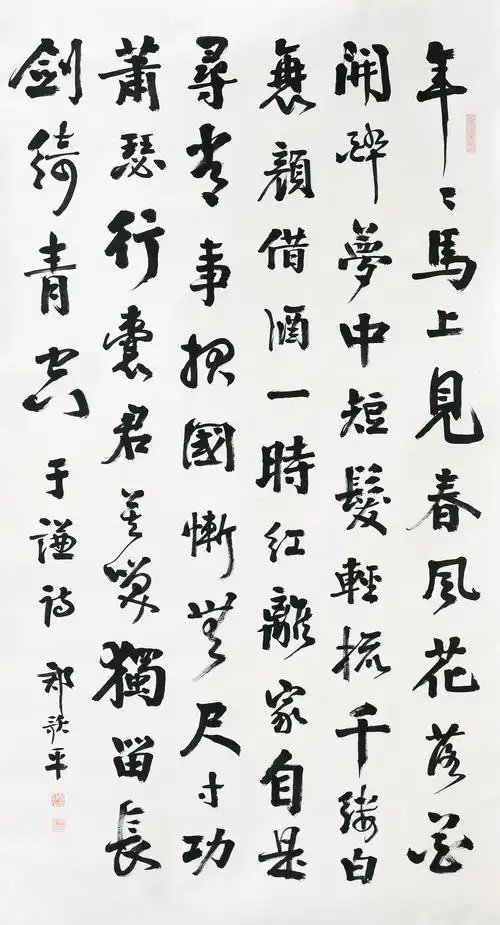 年々馬上見春風花落花
開醉夢中短髮輕梳千縷白
衰顏借酒一時紅離家自是
尋常事報國慚無尺寸功
蕭瑟行囊君莫笑獨留長
劍綺青空于謙詩